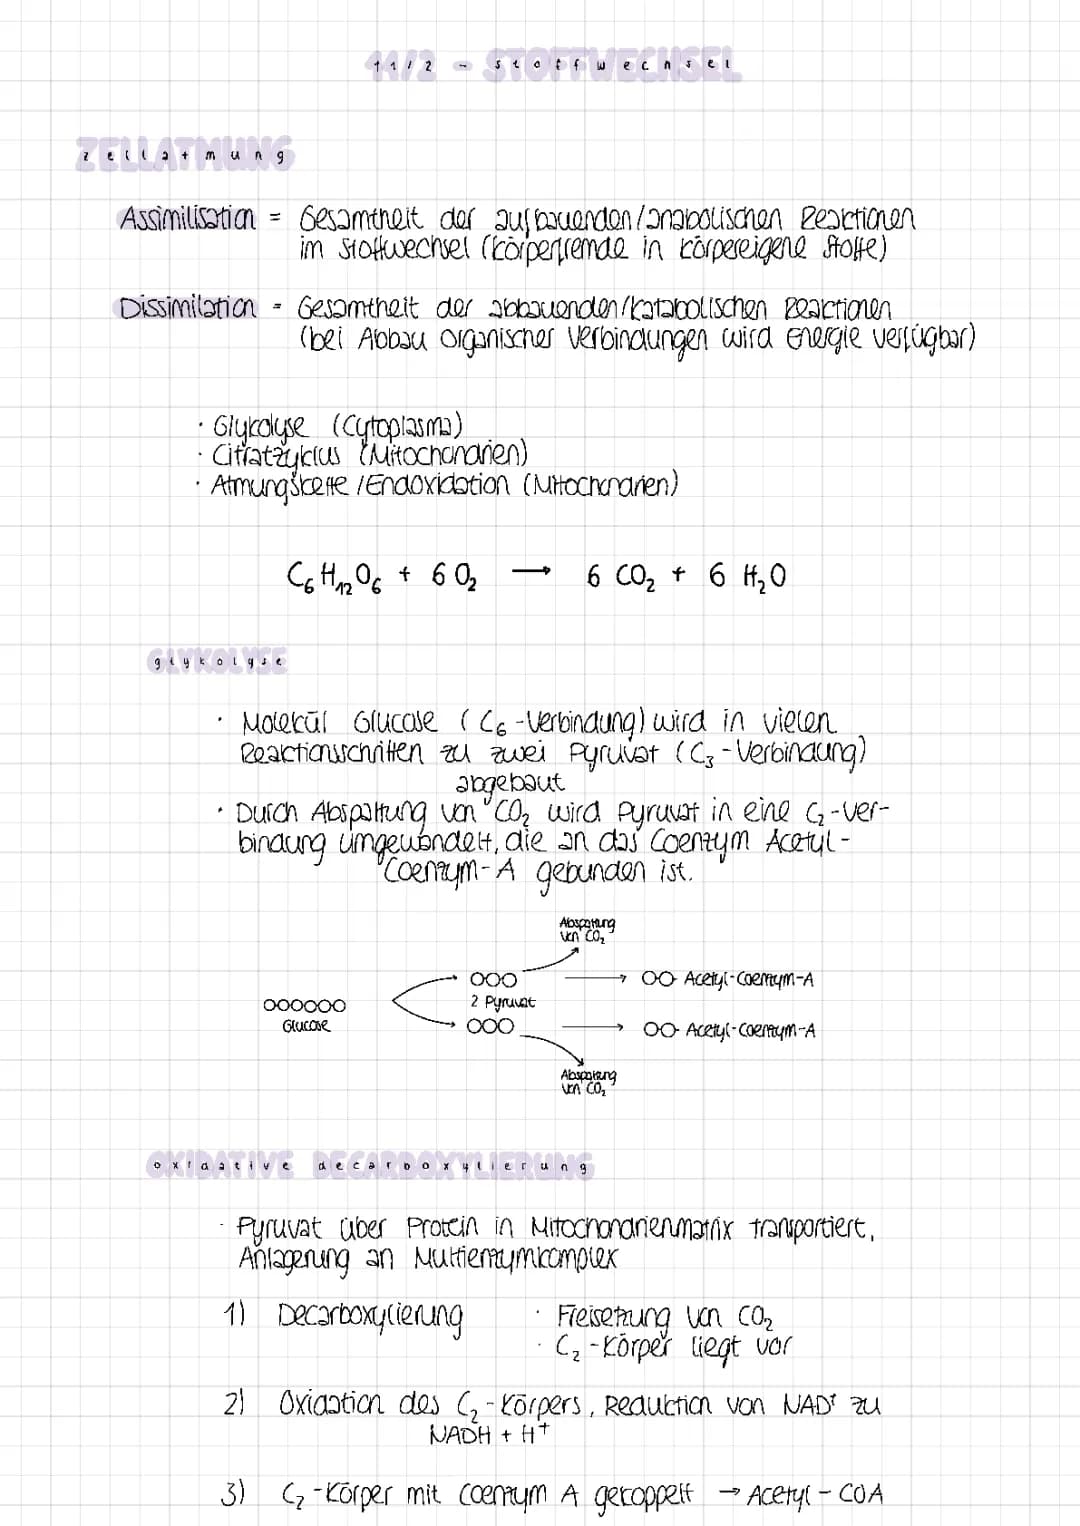 11/2 - STOFFWECHSEL
ZELLATMUNG
Assimilisation = Gesamtheit der aufbauenden/anabolischen Reaktionen
im Stoffwechsel (körperfremde in körpereigene Stoffe)
Dissimilation = Gesamtheit der abbauenden/katabolischen Reaktionen
(bei Abbau organischer Verbindungen wird Energie verfügbar)
· Glykolyse (Cytoplasma)
· Citratzyklus (Mitochondrien)
· Atmungskette/Endoxidation (Mitochondrien)
C₆H₁₂O₆ + 6 O₂ → 6 CO₂ + 6 H₂O
GLYKOLYSE
· Molekül Glucose (C₆-Verbindung) wird in vielen
Reaktionsschritten zu zwei Pyruvat (C₃-Verbindung)
abgebaut
· Durch Abspaltung von CO₂ wird Pyruvat in eine C₂-Ver-
bindung umgewandelt, die an das Coenzym Acetyl-
Coenzym-A gebunden ist.
Abspaltung
von CO₂
Acetyl-Coenzym-A
2 Pyruvat
Glucose
Acetyl-Coenzym-A
Abspaltung
von CO₂
OXIDATIVE DECARBOXYLIERUNG
· Pyruvat über Protein in Mitochondrienmatrix transportiert,
Anlagerung an Multienzymkomplex
1) Decarboxylierung · Freisetzung von CO₂
· C₂-Körper liegt vor
2) Oxidation des C₂-Körpers, Reduktion von NAD⁺ zu
NADH + H⁺
3) C₂-Körper mit Coenzym A gekoppelt → Acetyl-COA